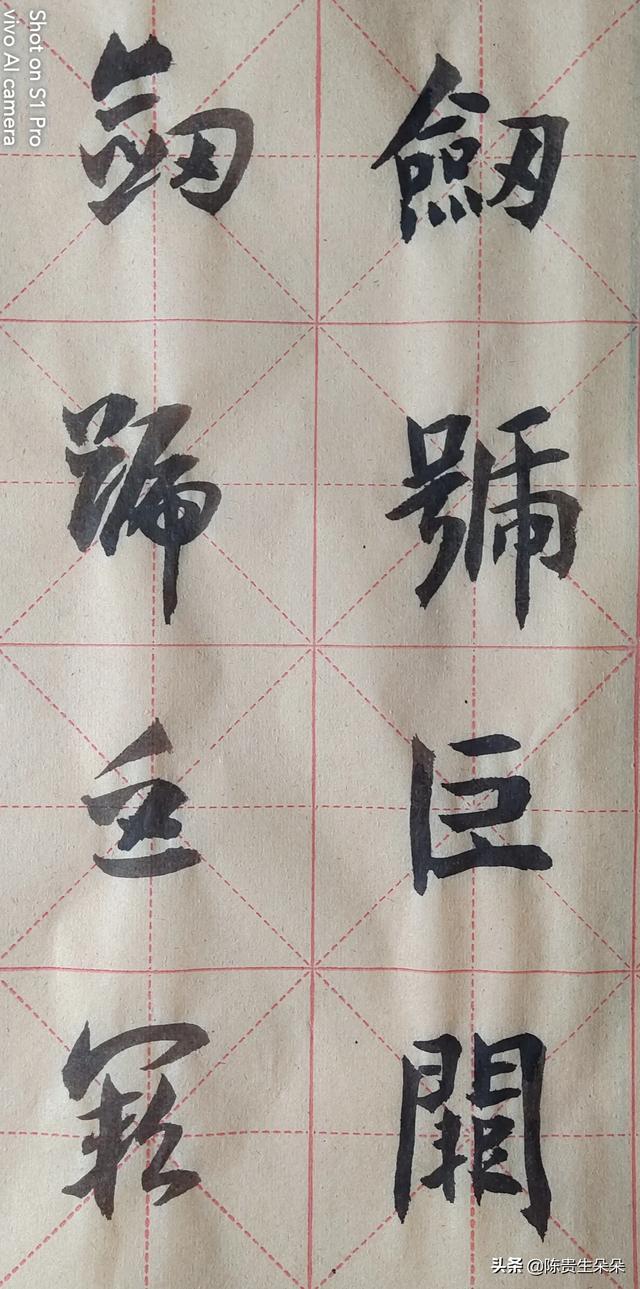 劒號巨闕
劒號巨闕
Shot on S1 Pro
vivo AI camera
头条 @陈贵生朵朵